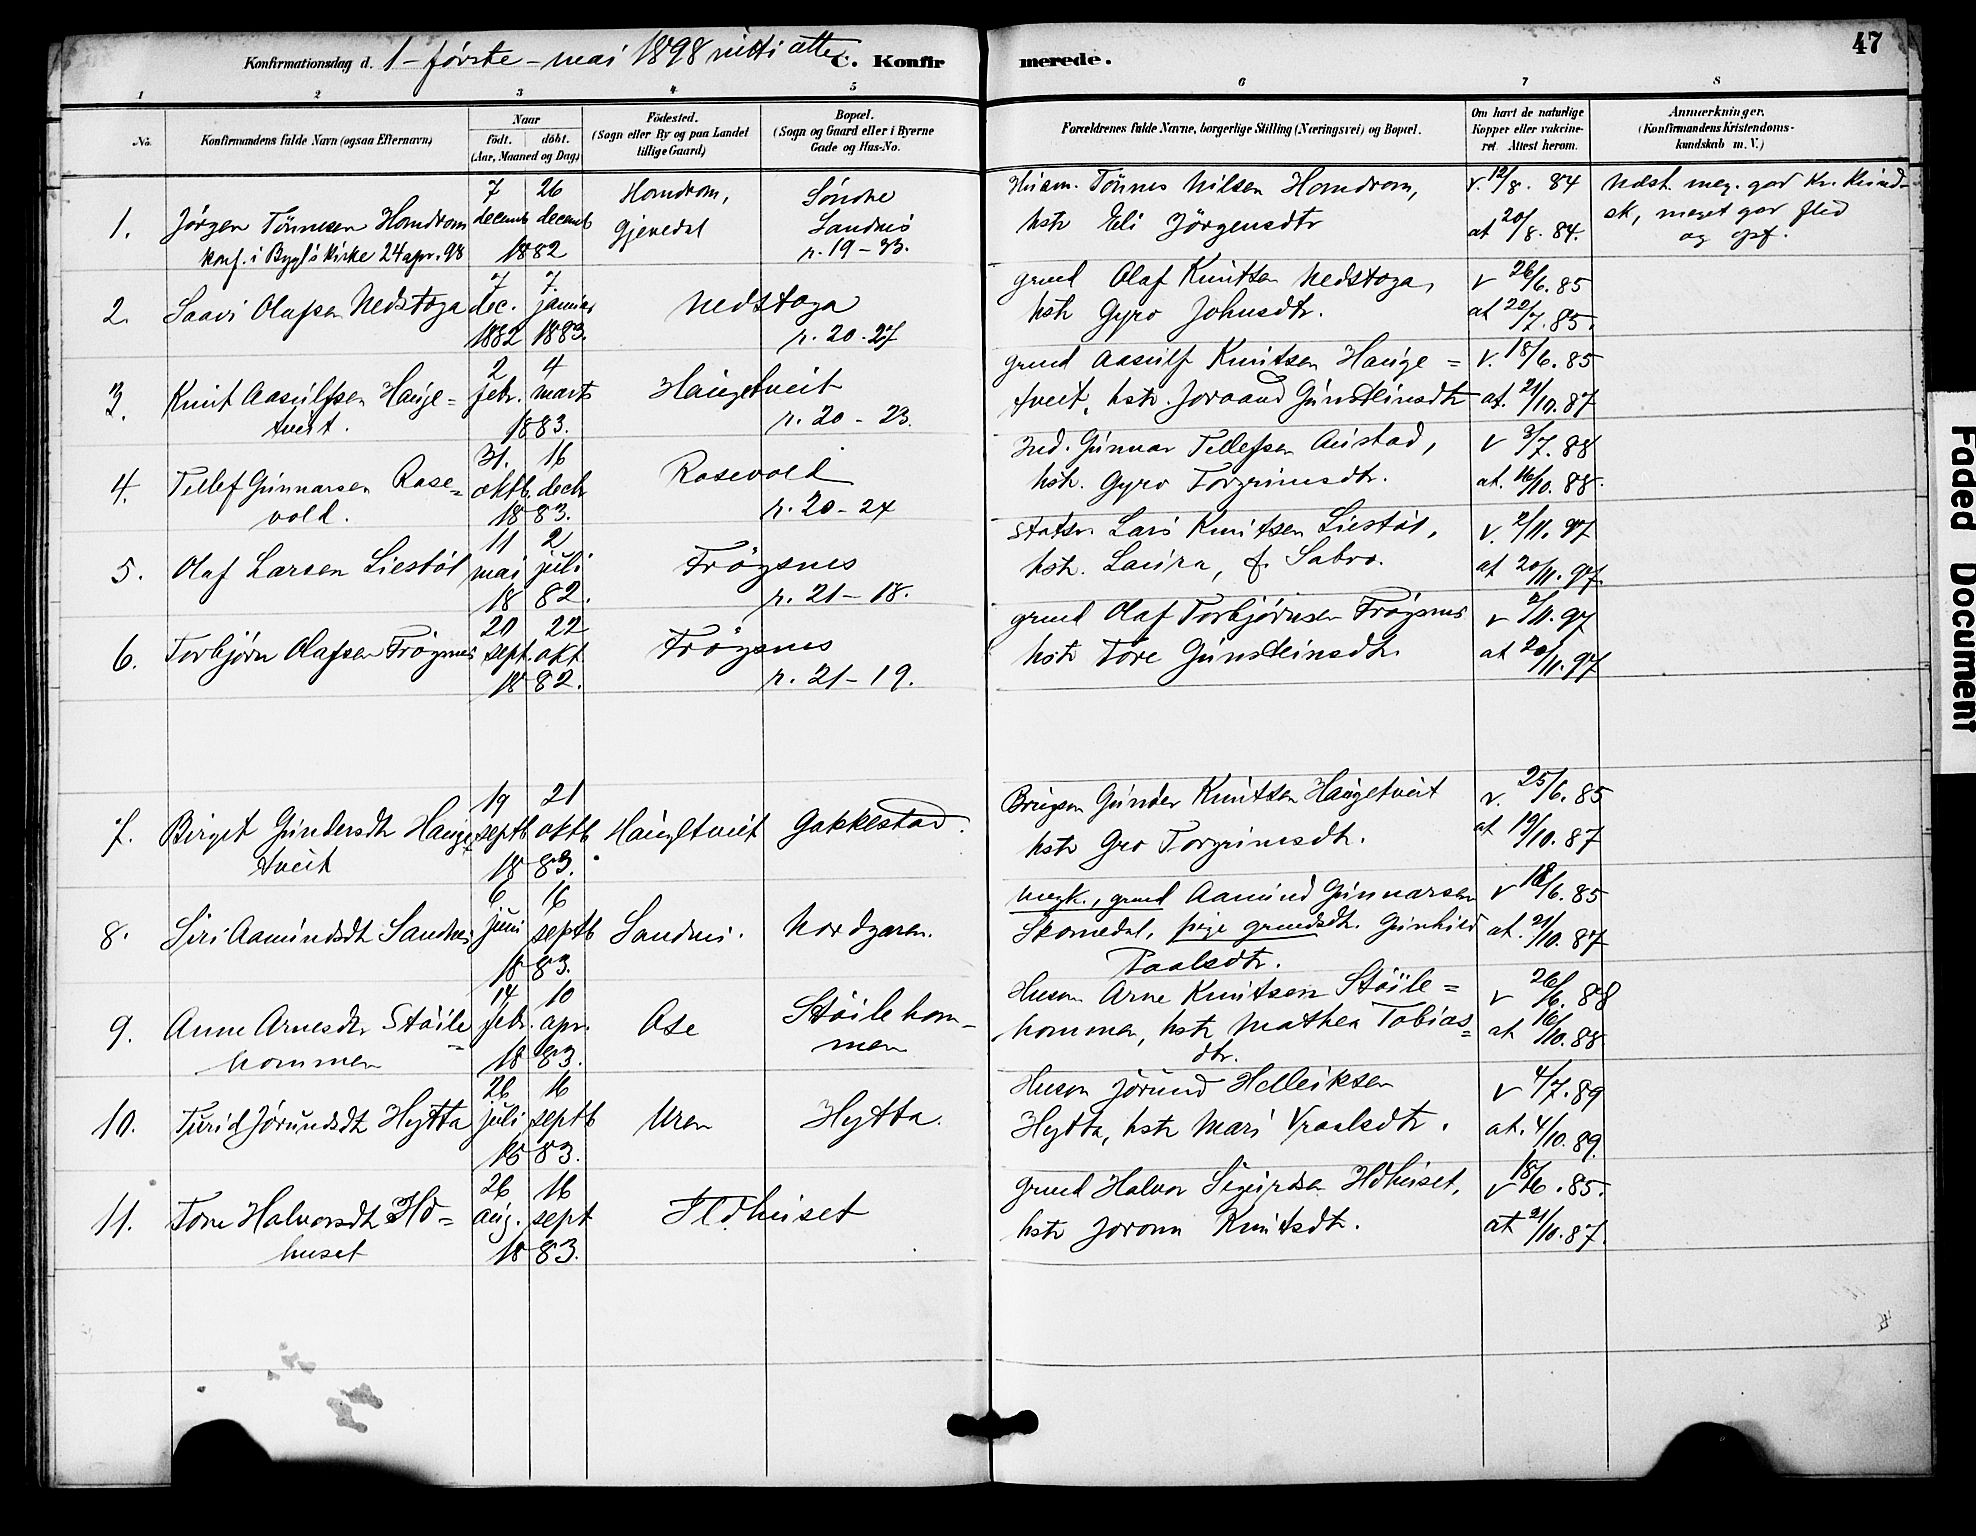 Konfirmationsdag d. 1 - første - mai 1898 nitti otte. C. Konfir merede. 47
1 2 3 4 5 6 7 8
No. Konfirmandens fulde Navn (ogsaa Efternavn) Naar født. døbt. (Aar, Maaned og Dag) Fødested. (Sogn eller By og paa Landet tillige Gaard) Bopæl. (Sogn og Gaard eller i Byerne Gade og Hus-No. Forældrenes fulde Navne, borgerlige Stilling (Næringsvei) og Bopæl. Om havt de naturlige Kopper eller vakcineret. Attest herom. Anmærkninger. (Konfirmandens Kristendomskundskab m. V.)
1. Jörgen Tönnesen Homdrom
konf. i Bygl's kirke 24 apr. 98
7 decemb 26 decemb 1882
Homdrom, Gjevedal
Söndre Sandnes r. 19 - 33.
Husm. Tönnes Nilsen Homdrom,
hstr Eli Jörgensdtr
v. 12/8. 84
at 20/8. 84.
meget god flid
2. Saavi Olafsen Nedstoga
7 dec. 1882 7. januar 1883.
Nedstoga
r. 20 - 27
grmd Olaf Knutsen Nedstoga,
hstr Gyro Johnsdtr.
v 26/6. 85
at 22/7. 85.
3. Knut Aasulfsen Hauge=
tveit.
2 febr. 4 marts 1883.
Haugetveit
r. 20 - 23.
grmd Aasulf Knutsen Hauge=
tveit, hstr. Joraand Gunsteinsdtr
v. 18/6. 85
at. 21/10. 87
4. Tellef Gunnarsen Rose=
vold.
31. oktb. 16 decb 1883.
Rosevold
r. 20 - 24
Ind. Gunnar Tellefsen Austad,
hstr. Gyro Torgrimsdtr.
v 3/7. 88
at. 16/10. 88.
5. Olaf Larsen Liestøl
11 mai 2 juli 1882.
Frøysnes
r. 21 - 18.
Lars Knutsen Liestøl,
hstr. Laura, f. Sabro.
v. 2/11. 97
at 20/11. 97.
6. Torbjørn Olafsen Frøysnes
20 sept. 22 okt 1882.
Frøysnes
r. 21 - 19.
grmd Olaf Torbjørnsen Frøysnes
hstr Tore Gunsteinsdtr.
v 2/11. 97
at 20/11. 97
7. Birget Gundersdtr Hauge
tveit
19 septb 21 oktb 1883.
Haugetveit
Gakkestad.
Brugsm Gunder Knutsen Haugetveit
hstr Gro Torgrimsdtr.
v. 25/6. 85
at 19/10. 87
8. Siri Aamundsdtr Sandnes
6 juni 16 septb 1883.
Sandnes.
Nordgaren.
ungk., grmd Aamund Gunnarsen
Skomedal, pige grmdsdtr. Gunhild
Paalsdtr.
v 18/6. 85
at. 21/10. 87
9. Anne Arnesdtr Stöile=
hommen
14 febr. 10 apr. 1883.
Ose
Stöilehom-
men
Husm Arne Knutsen Stöile=
hommen, hstr Mathea Tobias=
dtr.
v 26/6. 88
at 16/10. 88
10. Turid Jørundsdtr Hytta
26 juli 16 septb 1883.
Uren
Hytta.
Husm Jørund Helleiksen
Hytta, hstr Mari Vraalsdtr.
v 4/7. 89
at. 4/10. 89.
11. Tone Halvorsdtr Ild=
huset
26 aug. 16 sept 1883.
Ildhuset
grmd Halvor Sigurdsen Ildhuset,
hstr Joronn Knutsdtr.
v 18/6. 85.
at 21/10. 87.
Faded Document